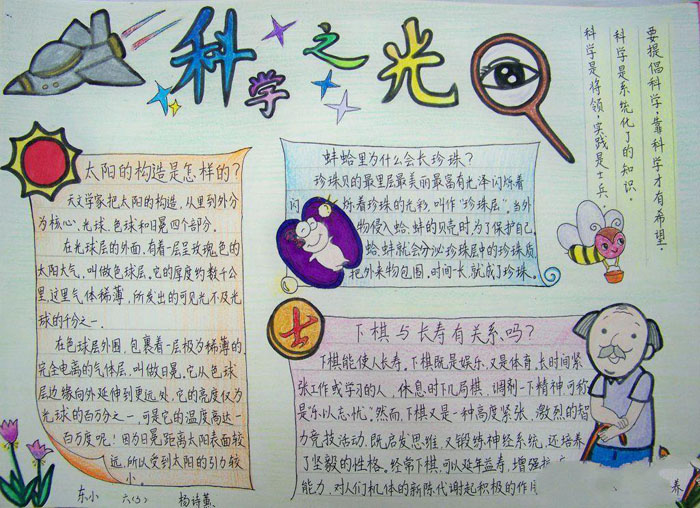 科学之光
要提倡科学,靠科学才有希望.
科学是系统化了的知识.
科学是将领,实践是士兵.
太阳的构造是怎样的?
天文学家把太阳的构造,从里到外分
为核心、光球、色球和日冕四个部分.
在光球层的外面,有着一层呈玫瑰色的
太阳大气,叫做色球层,它的厚度约数千公
里,这里气体稀薄,所发出的可见光不及光
球的千分之一.
在色球层外围,包裹着一层极为稀薄的,
完全电离的气体层,叫做日冕.它从色球
层边缘向外延伸到更远处.它的亮度仅为
光球的百万分之一,可是它的温度高达一
百万度呢!因为日冕距离太阳表面较
远,所以受到太阳的引力较
小.
蚌蛤里为什么会长珍珠?
珍珠贝的最里层最美丽最富有光泽闪烁着
闪烁着珍珠的光彩,叫作"珍珠层".当外
物侵入蛤、蚌的贝壳时,为了保护自己,
蛤、蚌就会分泌珍珠层中的珍珠质,
把外来物包围,时间一长,就成了珍珠.
士
下棋与长寿有关系吗?
下棋能使人长寿.下棋既是娱乐,又是体育,长时间紧
张工作或学习的人,休息时下几局棋,调剂一下精神,可称
是"乐以志忧."然而,下棋又是一种高度紧张、激烈的智
力竞技活动,既启发思维,又锻炼神经系统,还培养
了坚毅的性格.经常下棋,可以延年益寿,增强
能力,对人们机体的新陈代谢起积极的作用
养
东小 六(3) 杨诗薰